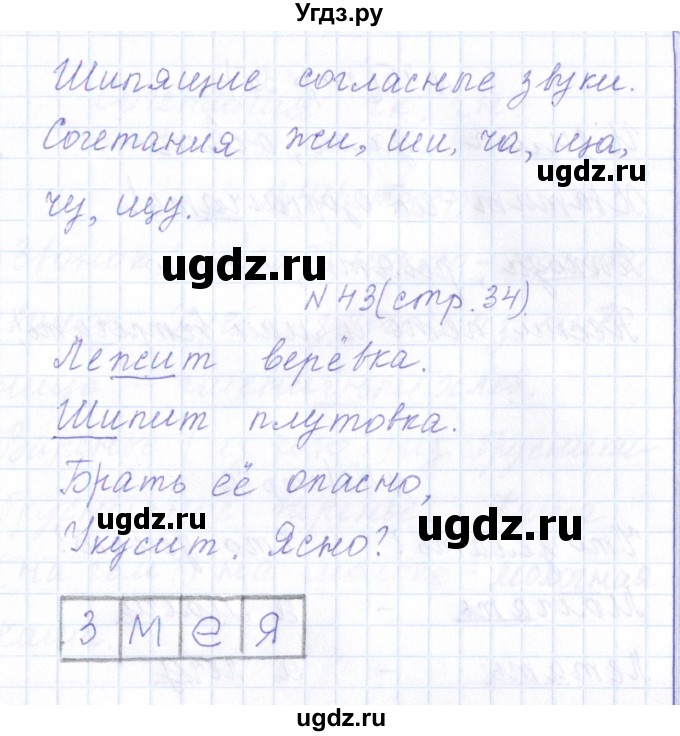 Угдз.ру
Шипящие согласные звуки.
Сочетания жи, ши, ча, ща,
ugdz.ru
чу, щу.
ugdz.ru
N 43(стр. 34)
Лежит верёвка.
Шипит плутовка.
Брать её опасно,
ugdz.ru
ugdz.ru
Укусит. Ясно?
змея
ugdz.ru